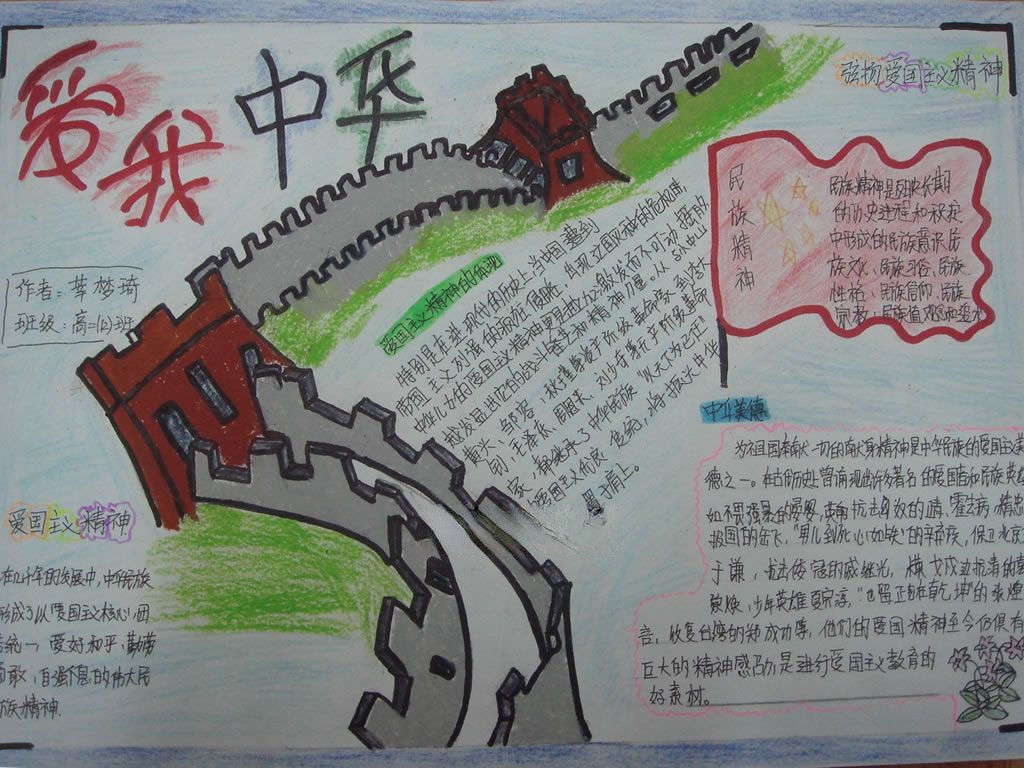 爱我中华
弘扬爱国主义精神
作者:莘梦琦
班级:高二(2)班
民族精神
民族精神是历史长期
的历史进程和积淀
中形成的民族意识、民
族文化、民族习俗、民族
性格、民族信仰、民族
宗教,民族价值观
爱国主义精神的体现
特别是在进现代的历史上,当中国遭到
帝国主义列强的疯狂侵略,出现亡国灭种的危机时,
中华儿女的爱国主义精神更是被激发而不可动摇
越发显出它的战斗姿态和精神力量。从孙中山
黄兴、邹容、秋瑾等资产阶级革命家到李大
钊、毛泽东、周恩来、刘少奇等无产阶级革命
家,都继承了中华民族
爱国主义优良传统,将振兴中华
置于肩上。
中华美德
为祖国奉献一切的献身精神是中华民族的爱国主义美
德之一。在古历史曾涌现过许多著名的爱国者和民族英雄
如不畏强暴的晏婴,英勇抗击匈奴的卫青、霍去病,精忠
报国的岳飞,“男儿到死心如铁”的辛弃疾,保卫北京
于谦,抗击倭寇的戚继光,横戈戍边抗清的袁
崇焕,少年英雄夏完淳,“也留正气在乾坤”的张煌
言,收复台湾的郑成功等,他们的爱国精神至今仍俱有
巨大的精神感召力是进行爱国主义教育的
好素材。
爱国主义精神
在几千年的发展中,中华民族
形成了以爱国主义核心,团
结统一、爱好和平、勤劳
勇敢、自强不息的伟大民
族精神.